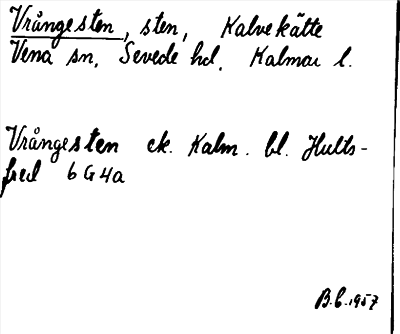 Vrångesten, sten, Kalvekätte
Vena sn. Sevede hd. Kalmar l.
Vrångesten ek. Kalm. bl. Hults-
fred 6 G 4a
B.C. 1957